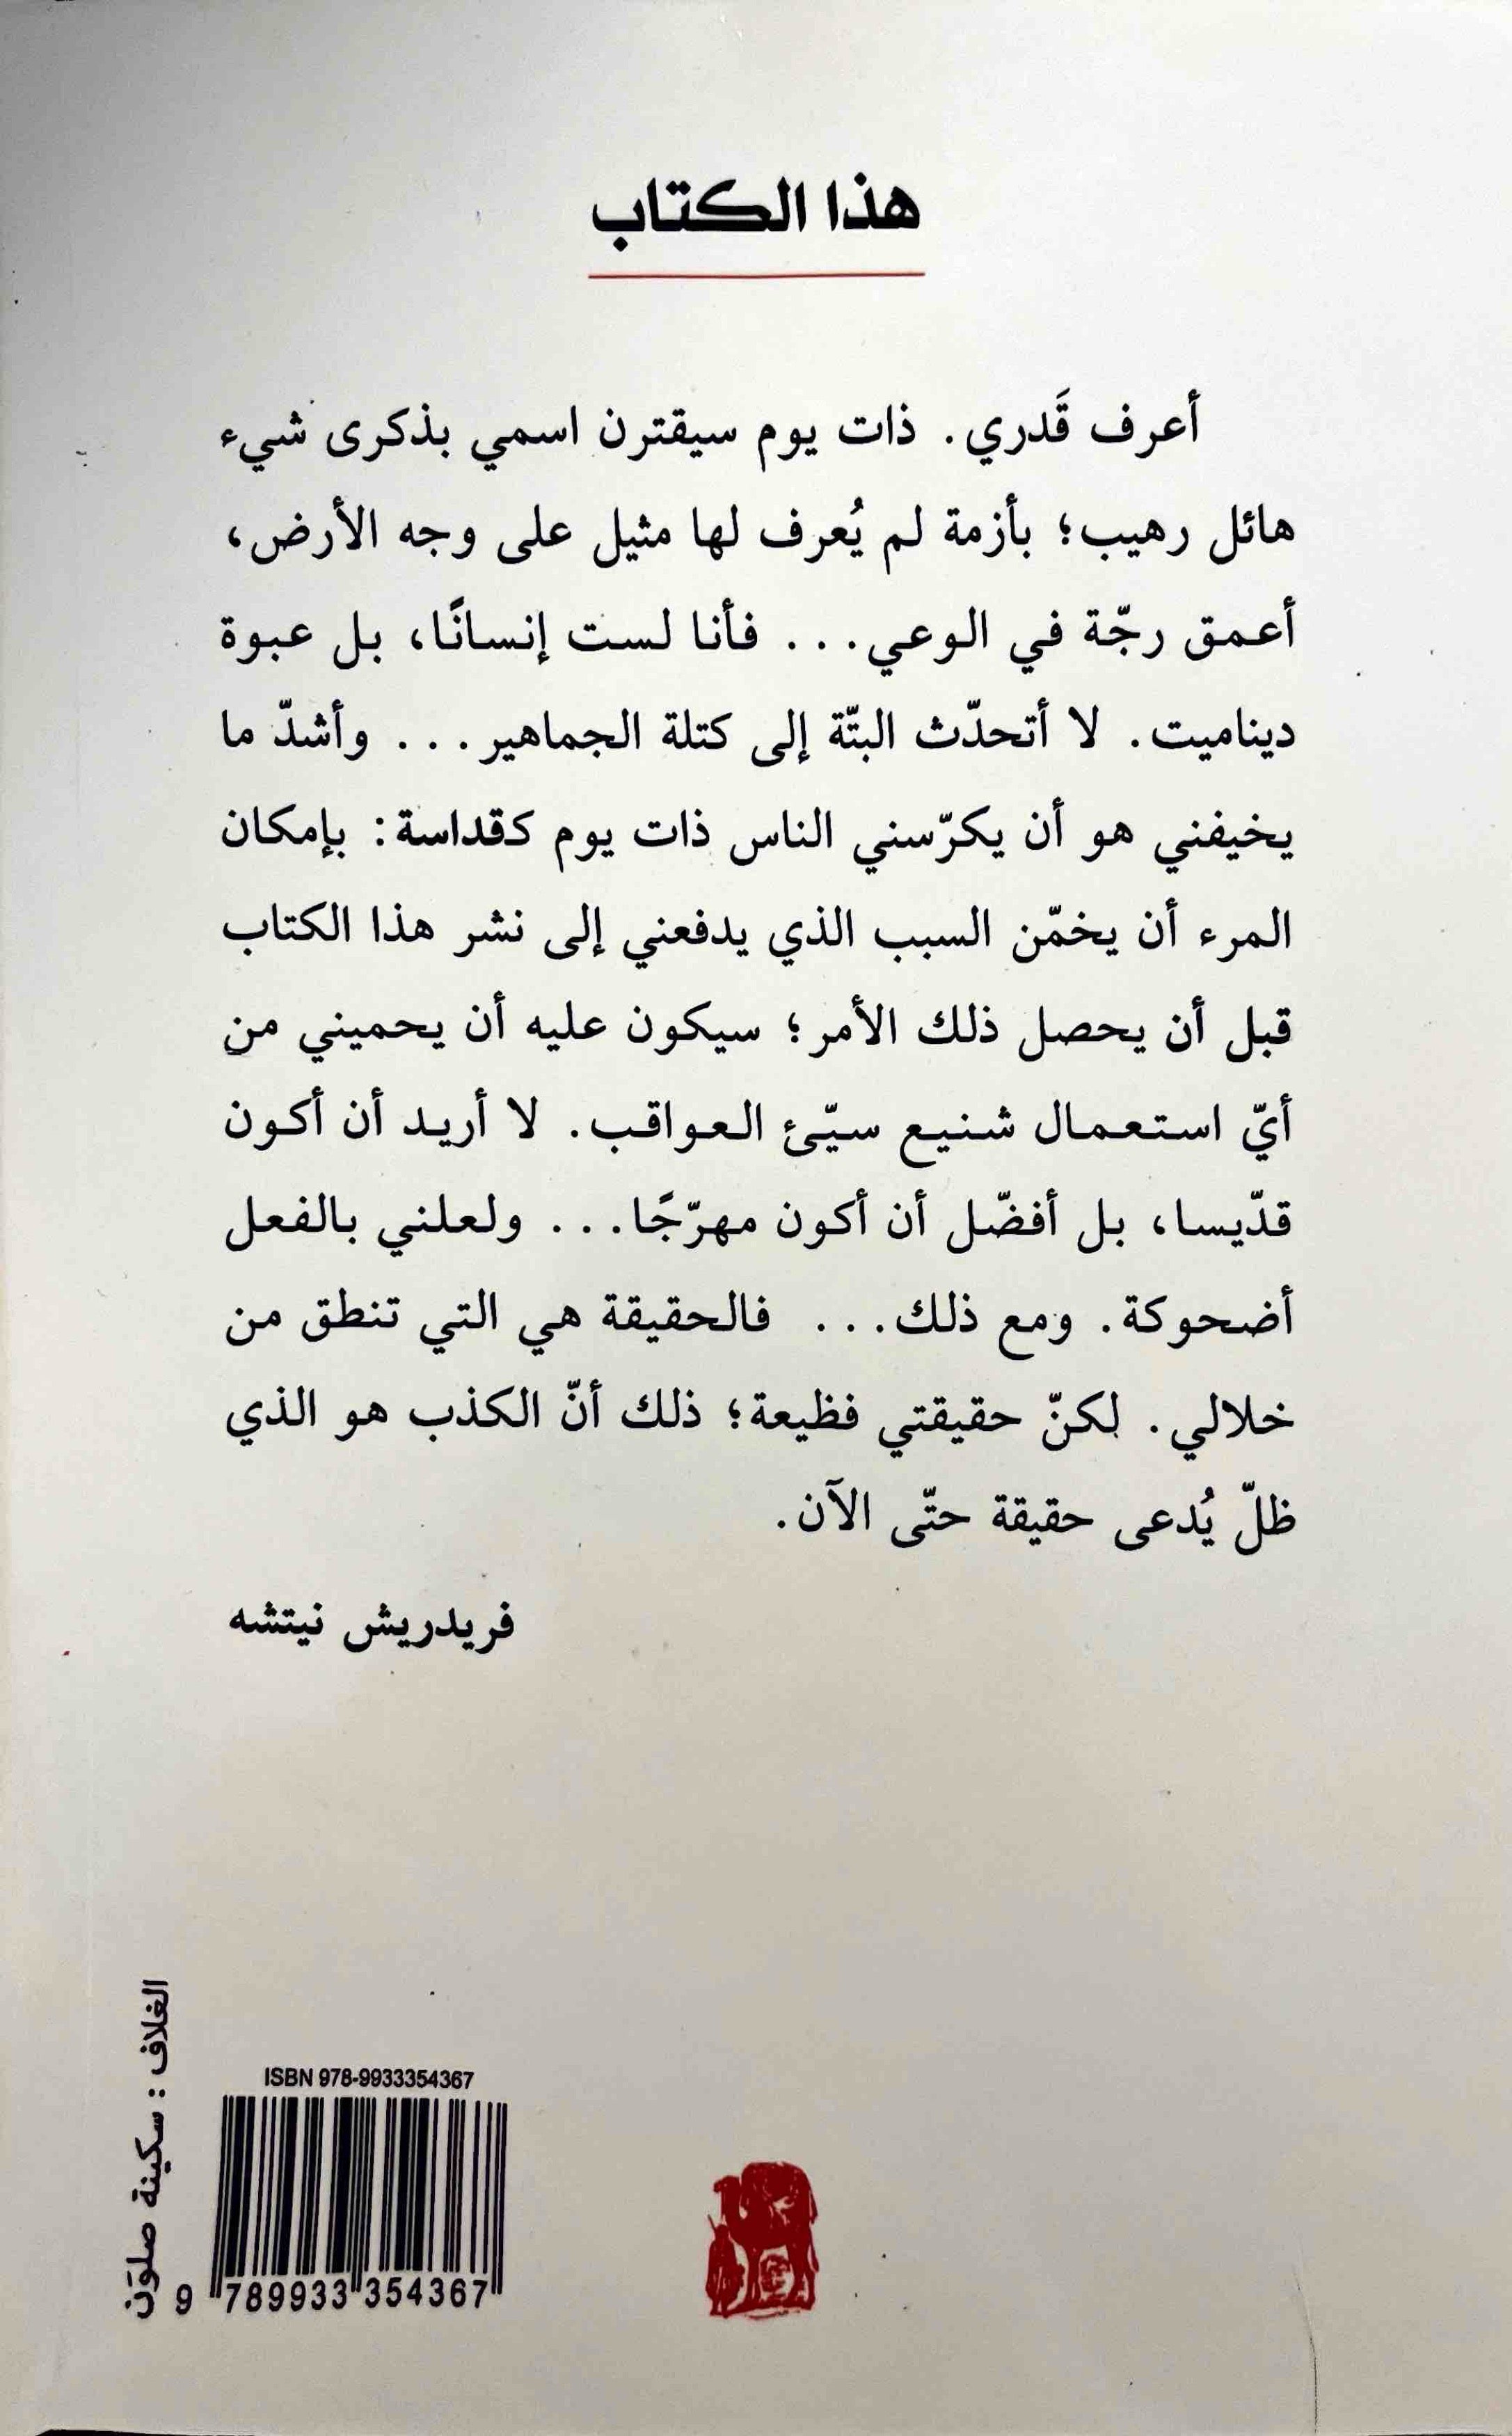 هذا الكتاب
أعرف قَدري. ذات يوم سيقترن اسمي بذكرى شيء
هائل رهيب؛ بأزمة لم يُعرف لها مثيل على وجه الأرض،
أعمق رجّة في الوعي... فأنا لست إنسانًا، بل عبوة
ديناميت. لا أتحدّث البتّة إلى كتلة الجماهير... وأشدّ ما
يخيفني هو أن يكرّسني الناس ذات يوم كقداسة: بإمكان
المرء أن يخمّن السبب الذي يدفعني إلى نشر هذا الكتاب
قبل أن يحصل ذلك الأمر؛ سيكون عليه أن يحميني من
أيّ استعمال شنيع سيّئ العواقب. لا أريد أن أكون
قدّيسا، بل أفضّل أن أكون مهرّجًا... ولعلني بالفعل
أضحوكة. ومع ذلك... فالحقيقة هي التي تنطق من
خلالي. لكنّ حقيقتي فظيعة؛ ذلك أنّ الكذب هو الذي
ظلّ يُدعى حقيقة حتّى الآن.
فريدريش نيتشه
الغلاف: سكينة صلوَن
ISBN 978-9933354367
9 789933 354367